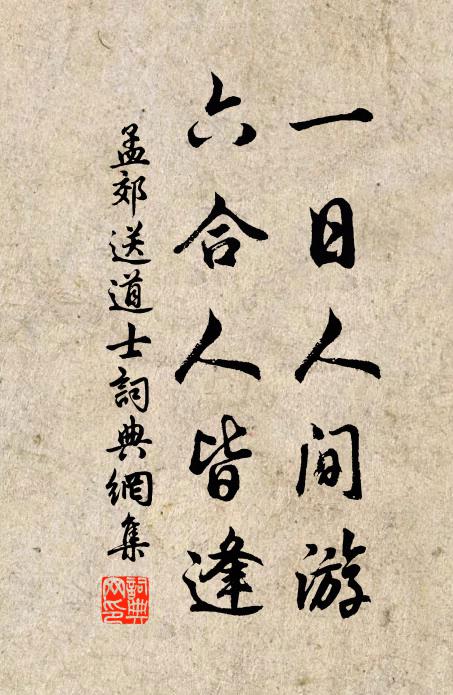 一日人间游
六合人皆逢
孟郊送道士詞典網集
詞典網印